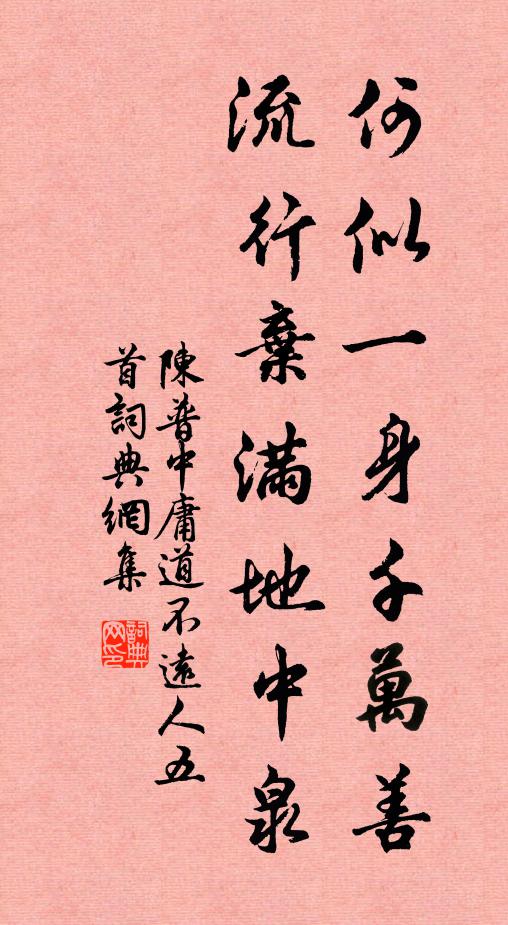 何似一身千萬善
流行棄滿地中泉
陳普中庸道不遠人五
首詞典網集
詞典网印